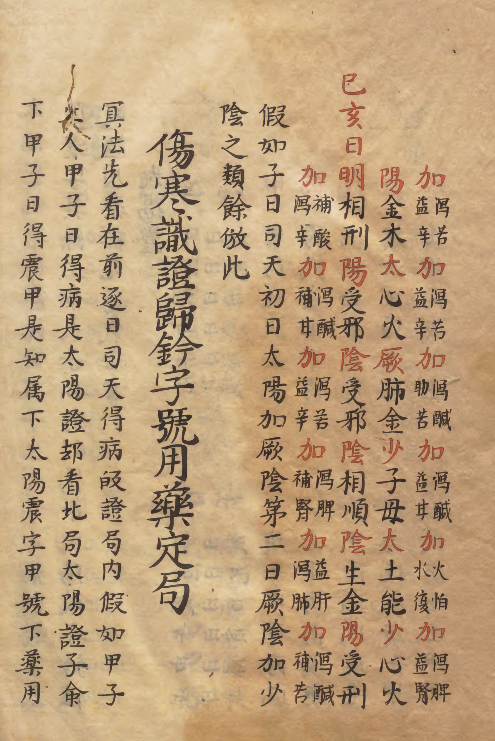 巳亥日明陽
加瀉苦益辛加瀉苦益辛加瀉醎助苦加瀉醎益甘加火怕水復加瀉脾益腎
陽金木太心火厥肺金少子母太土能少心火
明相刑陽受邪陰受邪陰相順陰生金陽受刑
加補酸瀉辛加瀉醎補甘加瀉苦益辛加瀉脾補腎加益肝瀉肺加瀉醎補苦
假如子日司天初日太陽加厥陰第二日厥陰加少
陰之類餘倣此
傷寒識證歸鈐字號用藥定局
冥法先看在前逐日司天得病的證局內假如甲子
人甲子日得病是太陽證却看此局太陽證子
下甲子日得震甲是知属下太陽震字甲號下藥用